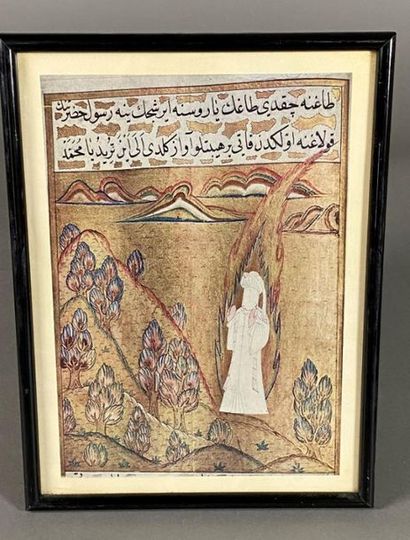 طاغنه چقدی طاغك ياروسنه ايرشجك ينه رسول حضرتينك
قولاغنه اولكدن قاتی هيبتلو آواز كلدی يا محمد